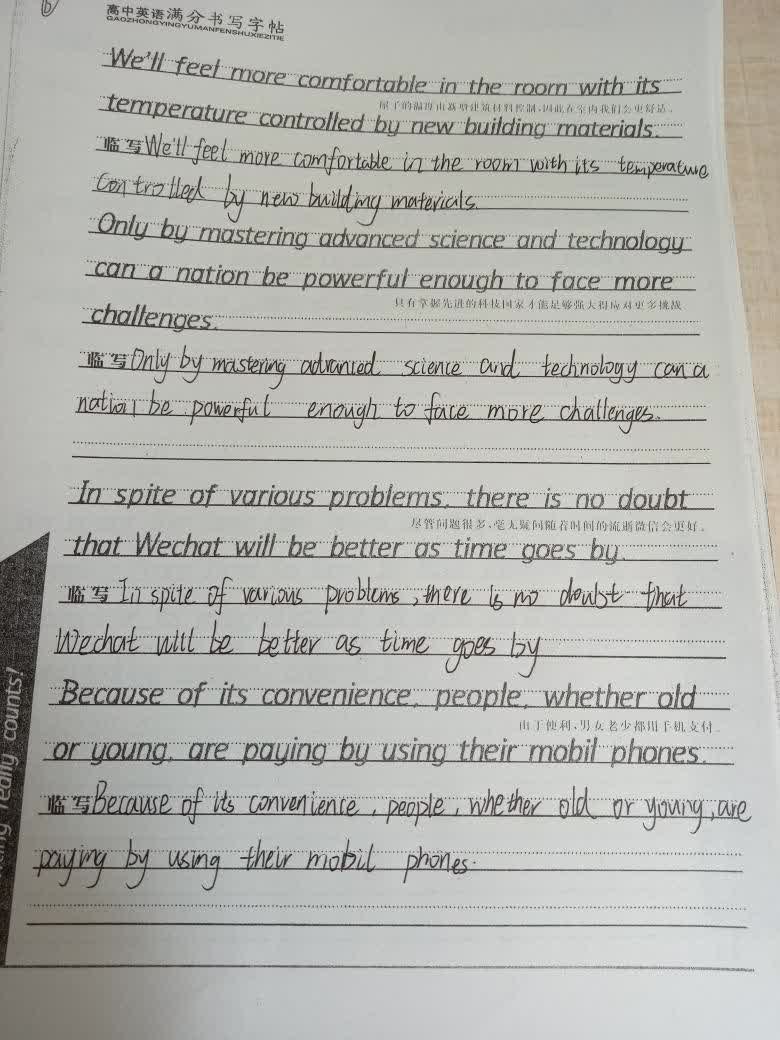 高中英语满分书写字帖
GAOZHONGYINGYUMANFENSHUXIEZITIE
We'll feel more comfortable in the room with its
屋子的温度由新型建筑材料控制,因此在室内我们会更舒适。
temperature controlled by new building materials.
临 写 We'll feel more comfortable in the room with its temperature
controlled by new building materials.
Only by mastering advanced science and technology
can a nation be powerful enough to face more
只有掌握先进的科技国家才能足够强大得应对更多挑战
challenges.
临 写 Only by mastering advanced science and technology can a
nation be powerful enough to face more challenges.
In spite of various problems, there is no doubt
尽管问题很多,毫无疑问随着时间的流逝微信会更好。
that Wechat will be better as time goes by.
临 写 In spite of various problems, there is no doubt that
Wechat will be better as time goes by
Because of its convenience, people, whether old
由于便利,男女老少都用手机支付。
or young, are paying by using their mobil phones.
临 写 Because of its convenience, people, whether old or young, are
paying by using their mobil phones.
really counts!